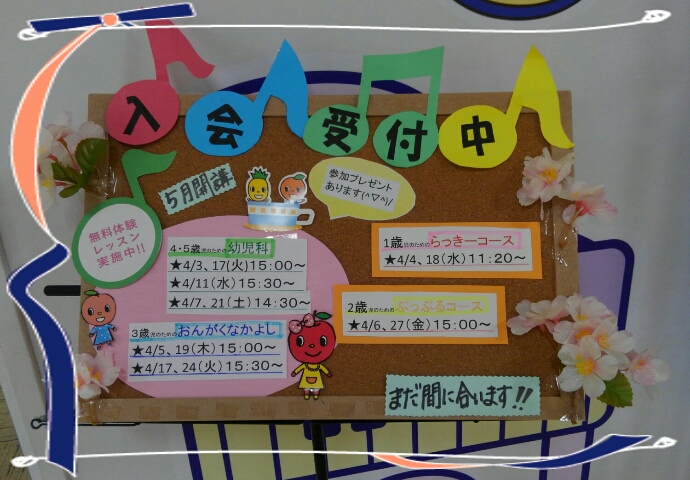 入会受付中
5月開講
参加プレゼント
あります(^▽^)/
無料体験
レッスン
実施中!!
4・5歳児のための幼児科
★4/3、17(火)15:00～
★4/11(水)15:30～
★4/7、21(土)14:30～
3歳児のためのおんがくなかよし
★4/5、19(木)15:00～
★4/17、24(火)15:30～
1歳児のためのらっきーコース
★4/4、18(水)11:20～
2歳児のためのぷっぷるコース
★4/6、27(金)15:00～
まだ間に合います!!